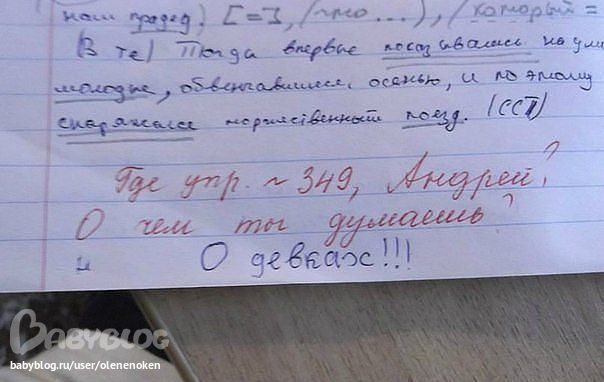 наш прадед), [=], (что...), (который =
(В те) Тогда впервые показывались на ули
молодые, обвенчавшиеся осенью, и поэтому
снаряжался торжественный поезд. (ССП)
Где упр. ~ 349, Андрей?
О чем ты думаешь?
О девках!!!
BABYBLOG
babyblog.ru/user/olenenoken